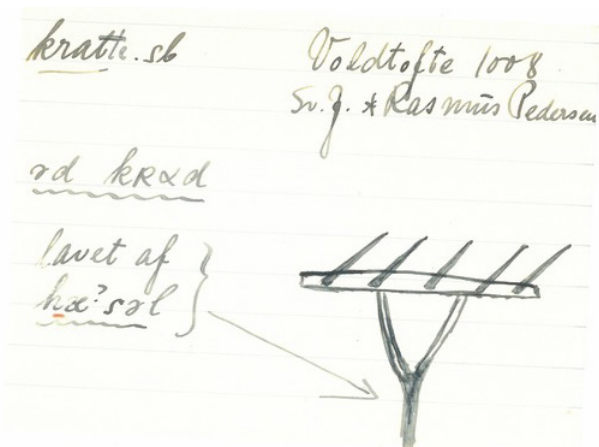 kratte. sb
Voldtofte 1008
Sv. J. * Rasmus Pedersen
ɤd kRαd
lavet af
hα?sɤl